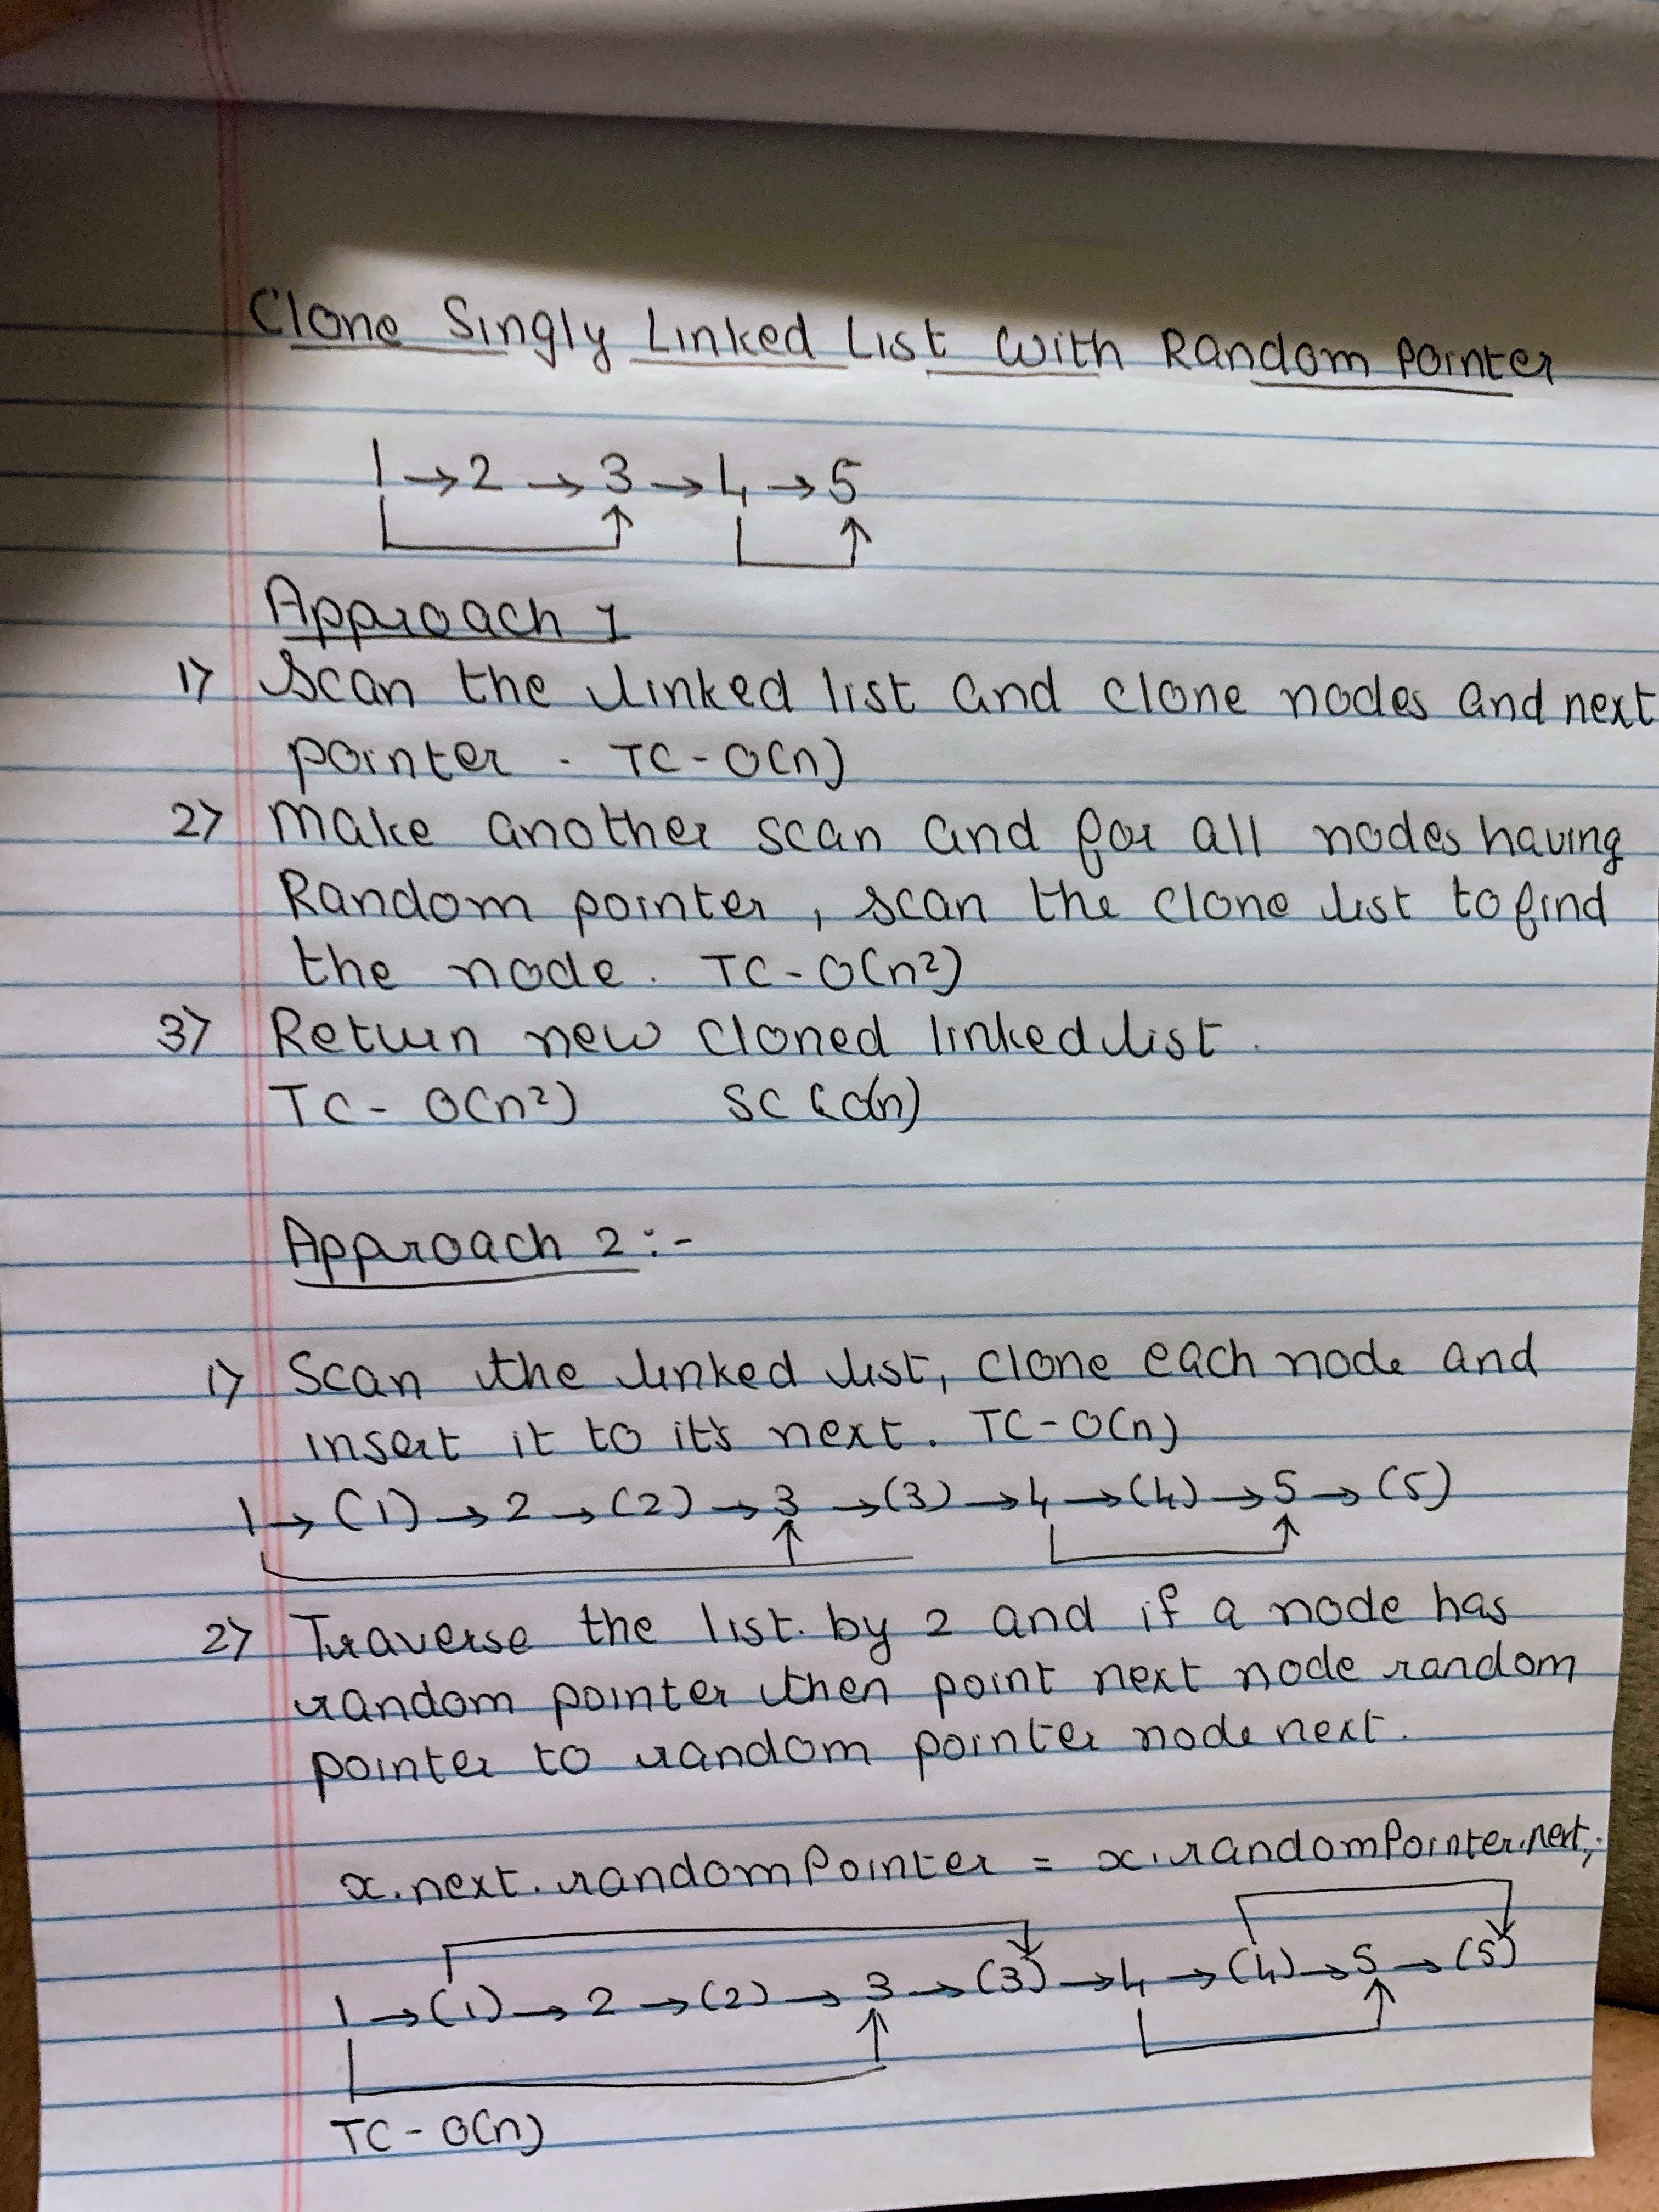 Clone Singly Linked List with Random Pointer
1 → 2 → 3 → 4 → 5
Approach 1
1> Scan the linked list and clone nodes and next
pointer. TC-O(n)
2> Make another scan and for all nodes having
Random pointer, scan the clone list to find
the node. TC-O(n²)
3> Return new cloned linked list.
TC- O(n²) SC O(n)
Approach 2:-
1> Scan the linked list, clone each node and
insert it to it's next. TC-O(n)
1 → (1) → 2 → (2) → 3 → (3) → 4 → (4) → 5 → (5)
2> Traverse the list. by 2 and if a node has
random pointer then point next node random
pointer to random pointer node next.
x.next.randomPointer = x.randomPointer.next;
1 → (1) → 2 → (2) → 3 → (3) → 4 → (4) → 5 → (5)
TC-O(n)